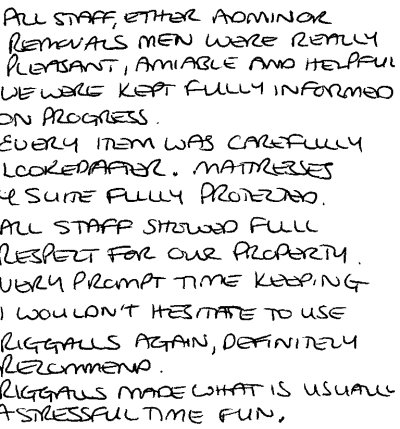 ALL STAFF, EITHER ADMIN OR
REMOVALS MEN WERE REALLY
PLEASANT, AMIABLE AND HELPFUL
WE WERE KEPT FULLY INFORMED
ON PROGRESS.
EVERY ITEM WAS CAREFULLY
LOOKED AFTER. MATTRESSES
& SUITE FULLY PROTECTED.
ALL STAFF SHOWED FULL
RESPECT FOR OUR PROPERTY.
VERY PROMPT TIME KEEPING
I WOULDN'T HESITATE TO USE
RIGGALLS AGAIN, DEFINITELY
RECOMMEND.
RIGGALLS MADE WHAT IS USUALLY
A STRESSFUL TIME FUN.